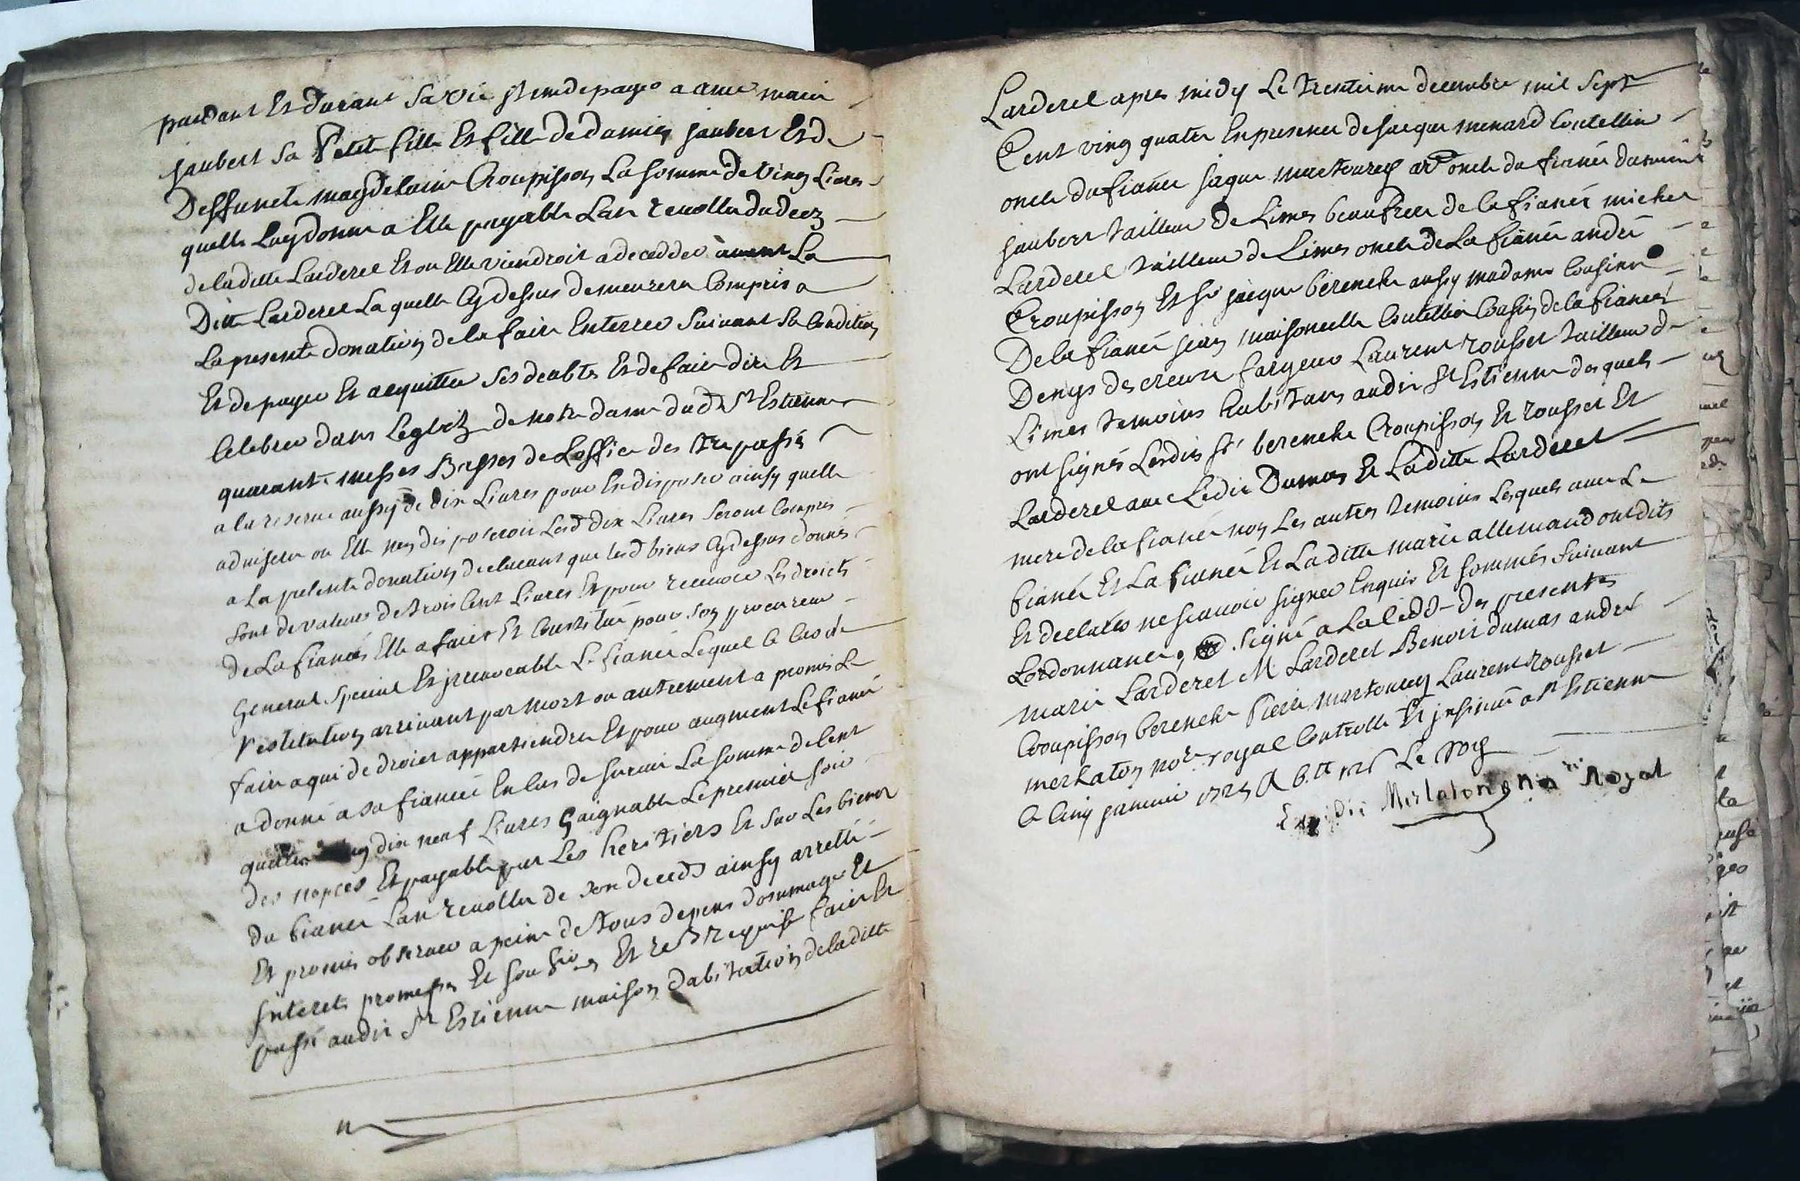 pendant Et durant sa vie Et de payer a anne marie
jaubert sa Petite fille Et fille de damien jaubert Et de
Deffuncte magdelaine Croupisson La somme de vingt Livres
quelle Luy donne a Elle payable Lan revollu du decez
de laditte Larderel Et ou Elle viendroit a decedder avant La
Ditte Larderel La quelle cy dessus demeurera Compris a
La presente donation de la faire Enterrer suivant sa Condition
Et de payer Et acquitter ses deubtes Et de faire dire Et
Celebrer dans Leglize de notre dame dudt St Estienne
quarante messes Basses de Loffice des trepassés
a la reserve aussy de dix Livres pour En disposer ainsy quelle
advisera ou Elle nen disposeroit Lesd dix Livres seront Compris
a La presente donation declarant que lesd biens cy dessus donnés
sont de valeur de trois Cent Livres Et pour recevoir Les droicts
de La fiancée Elle a fait Et Constitué pour son procureur
General special Et jrrevocable Le fiancé Lequel Le Cas de
restitution arrivant par mort ou autrement a promis Le
faire a qui de droict appartiendra Et pour augment Le fiancé
a donné a sa fiancée En Cas de survie La somme de Cent
quattre vingt dix neuf Livres Gaignable Le premier soir
des nopces Et payable par Les heritiers Et sur Les biens
du fiancé Lan revollu de son deceds ainsy arresté
Et promis observer a peine de tous depens dommage Et
jnterets promesses Et soub Et requise fait Et
passé audit St Estienne maison dabitation de laditte
Larderel apres midy Le trentieme decembre mil sept
Cent vingt quatre En presence de jacque menard Coutellier
oncle du fiancé jaque oncle du fiancé
jaubert tailleur de Limes beaufrere de la fiancée michel
Larderel tailleur de Limes oncle de La fiancée andré
Croupisson Et Sr jacque berenche aussy Cousin
De la fiancée jean maisonnelle Coutellier Cousin de la fiancée
Denys descreux fargeur Laurent rousset tailleur de
Limes temoins habitans audit St Estienne desquels
ont signés Lesdits Sr berenche Croupisson Et rousset Et
Larderel avec Ledit Dumas Et Laditte Larderel
mere de la fiancée non Les autres temoins Lesquels avec Le
fiancé Et La fiancée Et Laditte marie allemand ont dits
Et declarés ne scavoir signer Enquis Et sommés suivant
Lordonnance, signé a La Cedde des presentes
marie Larderet M Larderet Benoit dumas andré
Croupisson berenche Pierre Laurent rousset
merlaton nore royal Controllé Et jnsinué a St Estienne
Le Cinq janvier 1725 Le Roy
Expedié Merlaton no re Royal